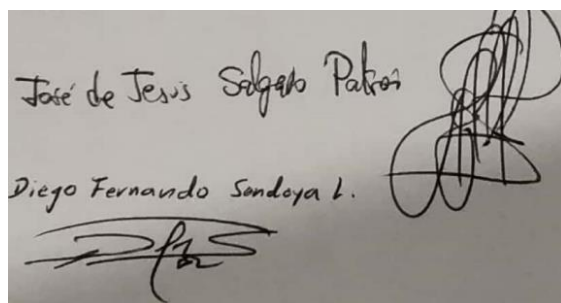 José de Jesus Salgado Patron
Diego Fernando Sendoya L.